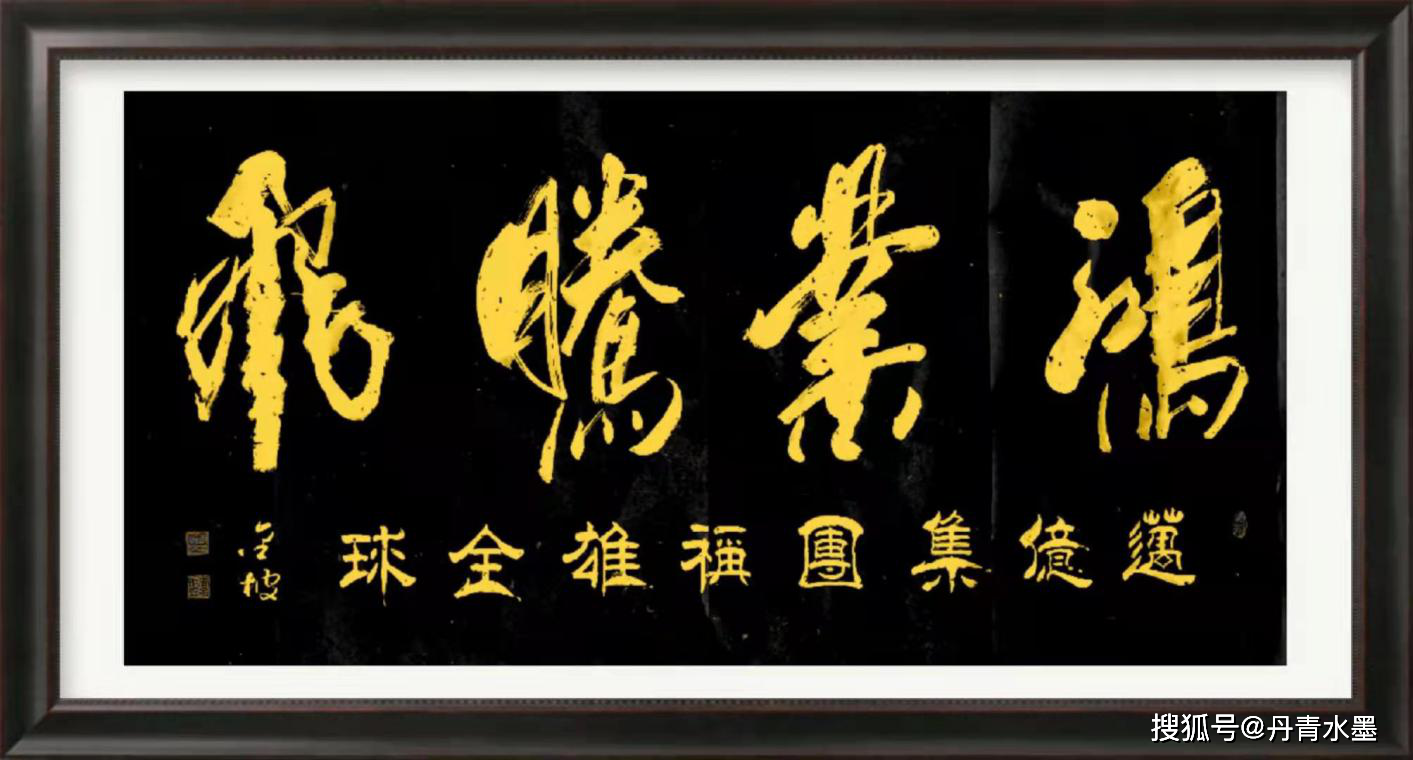 鴻業騰飛
邁億集團稱雄全球
搜狐号@丹青水墨